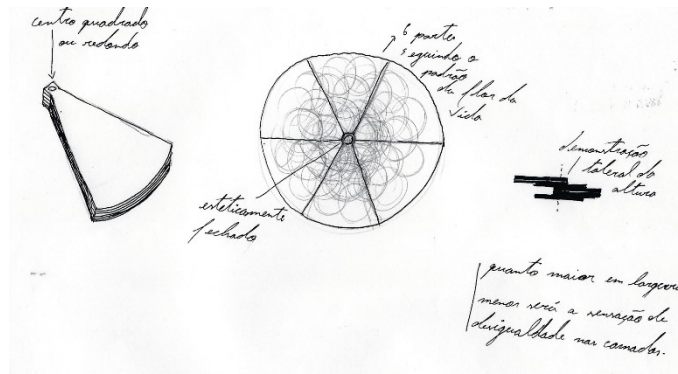 centro quadrado
ou redondo
6 partes
seguindo o
padrão
da flor da
vida
esteticamente
fechado
demonstração
lateral da
altura
quanto maior em largura
menor será a sensação de
desigualdade nas camadas.